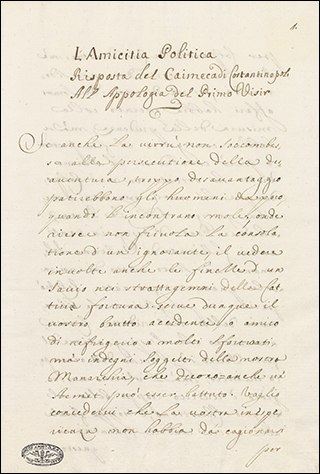 1.
L'Amicitia Politica
Risposta del Caimecã di Costantinopoli
All' Appologia del Primo Visir
Se anche la virtù non soccombes
se alla persecutione della dis
aventura, troppo disavantaggio
patirebbono gli huomani
quando l'incontrano mole, onde
non frivola la consola
tione d'un ignorante, il vedere
involte anche le finezze d'un
Savio nei strattagemmi della cat
tiva fortuna. serve dunque il
vostro brutto accidente, ò amico
di refrigerio a molti sfortunati,
mà indegni soggetti della nostra
Monarchia, che anche
può esser battuto. Voglio
concedervi che la vostra indige
vienza non habbia dà cagionarsi
per